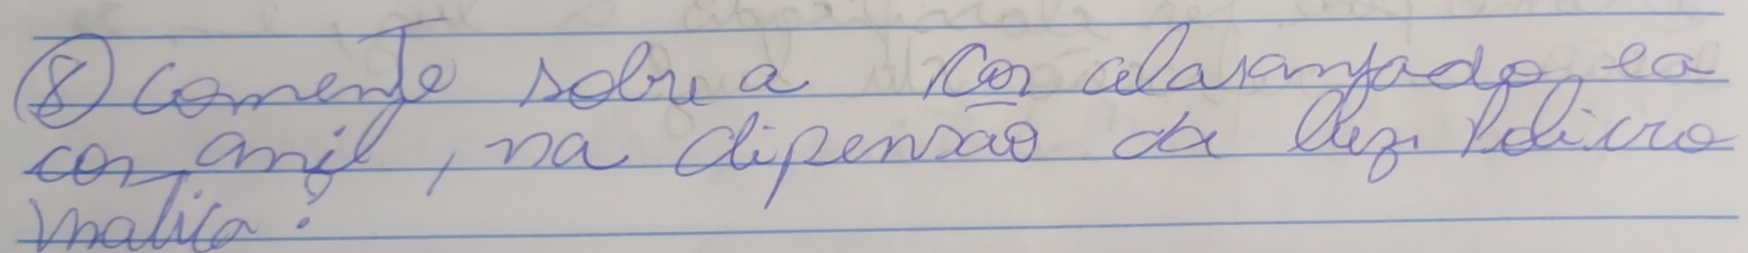 ⑧ Comente sobre a cor alaranjado, e a
cor anil, na dipensão da luz Policro
matica?